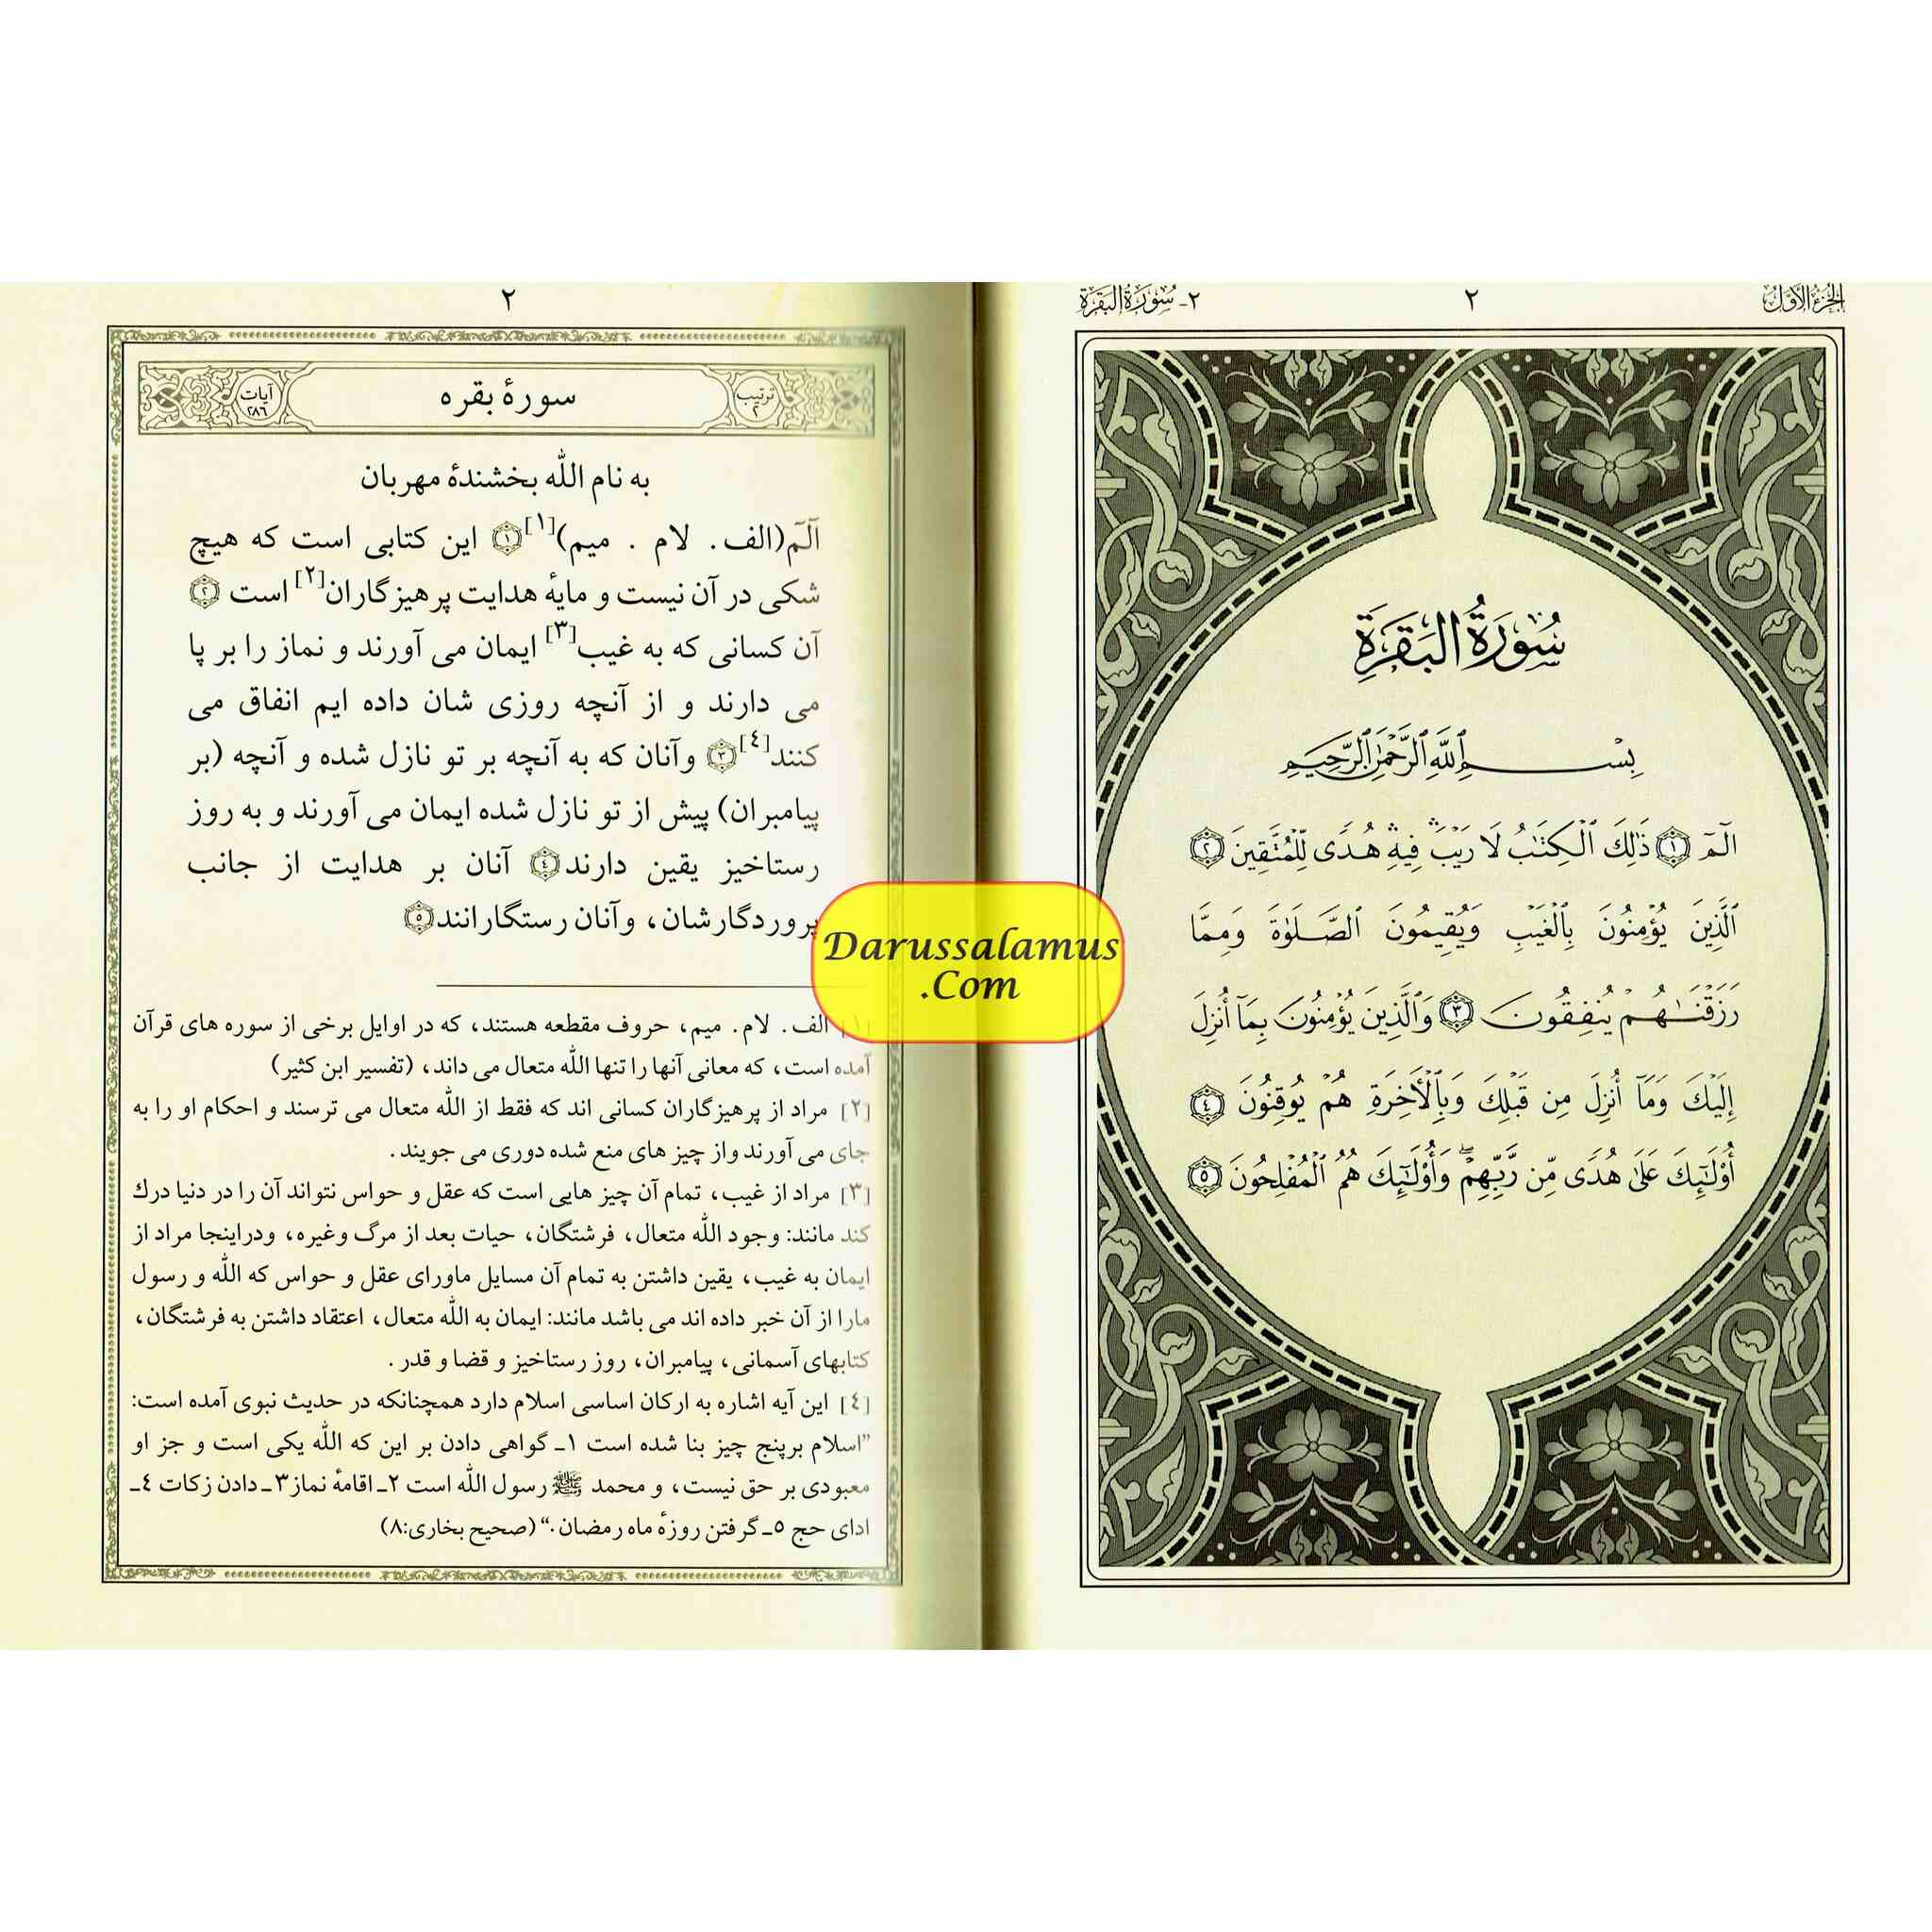 الجزء الأول
٢
٢- سورة البقرة
سُورَةُ البَقَرَةِ
بِسۡمِ ٱللَّهِ ٱلرَّحۡمَٰنِ ٱلرَّحِيمِ
الٓمٓ ١ ذَٰلِكَ ٱلۡكِتَٰبُ لَا رَيۡبَۛ فِيهِۛ هُدٗى لِّلۡمُتَّقِينَ ٢
ٱلَّذِينَ يُؤۡمِنُونَ بِٱلۡغَيۡبِ وَيُقِيمُونَ ٱلصَّلَوٰةَ وَمِمَّا
رَزَقۡنَٰهُمۡ يُنفِقُونَ ٣ وَٱلَّذِينَ يُؤۡمِنُونَ بِمَآ أُنزِلَ
إِلَيۡكَ وَمَآ أُنزِلَ مِن قَبۡلِكَ وَبِٱلۡأٓخِرَةِ هُمۡ يُوقِنُونَ ٤
أُوْلَٰٓئِكَ عَلَىٰ هُدٗى مِّن رَّبِّهِمۡۖ وَأُوْلَٰٓئِكَ هُمُ ٱلۡمُفۡلِحُونَ ٥
٢
ترتیب ٢
سورهٔ بقره
آیات ٢٨٦
به نام الله بخشندهٔ مهربان
آلٓمٓ(الف. لام . میم)[١] ١ این کتابی است که هیچ
شکی در آن نیست و مایهٔ هدایت پرهیزگاران[٢] است ٢
آن کسانی که به غیب[٣] ایمان می آورند و نماز را بر پا
می دارند و از آنچه روزی شان داده ایم انفاق می
کنند[٤] ٣ وآنان که به آنچه بر تو نازل شده و آنچه (بر
پیامبران) پیش از تو نازل شده ایمان می آورند و به روز
رستاخیز یقین دارند ٤ آنان بر هدایت از جانب
پروردگارشان، وآنان رستگارانند ٥
[١] الف. لام. میم، حروف مقطعه هستند، که در اوایل برخی از سوره های قرآن
آمده است، که معانی آنها را تنها الله متعال می داند، (تفسیر ابن کثیر)
[٢] مراد از پرهیزگاران کسانی اند که فقط از الله متعال می ترسند و احکام او را به
جای می آورند واز چیز های منع شده دوری می جویند.
[٣] مراد از غیب، تمام آن چیز هایی است که عقل و حواس نتواند آن را در دنیا درك
کند مانند: وجود الله متعال، فرشتگان، حیات بعد از مرگ وغیره، ودراینجا مراد از
ایمان به غیب، یقین داشتن به تمام آن مسایل ماورای عقل و حواس که الله و رسول
مارا از آن خبر داده اند می باشد مانند: ایمان به الله متعال، اعتقاد داشتن به فرشتگان،
کتابهای آسمانی، پیامبران، روز رستاخیز و قضا و قدر.
[٤] این آیه اشاره به ارکان اساسی اسلام دارد همچنانکه در حدیث نبوی آمده است:
"اسلام برپنج چیز بنا شده است ١ـ گواهی دادن بر این که الله یکی است و جز او
معبودی بر حق نیست، و محمد ﷺ رسول الله است ٢ـ اقامهٔ نماز ٣ـ دادن زکات ٤ـ
ادای حج ٥ـ گرفتن روزهٔ ماه رمضان." (صحیح بخاری:٨)
Darussalamus
.Com